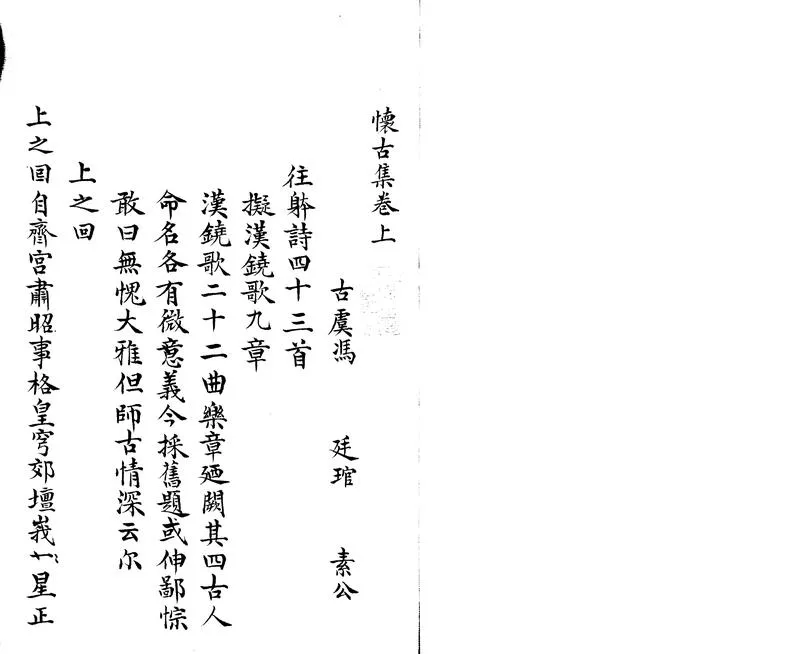 懷古集卷上
古虞馮 廷琯 素公
往躰詩四十三首
擬漢鐃歌九章
漢鐃歌二十二曲樂章廼闕其四古人
命名各有微意義今採舊題或伸鄙悰
敢曰無愧大雅但師古情深云尓
上之回
上之囘自齋宮肅昭事格皇穹郊壇峩〻星正